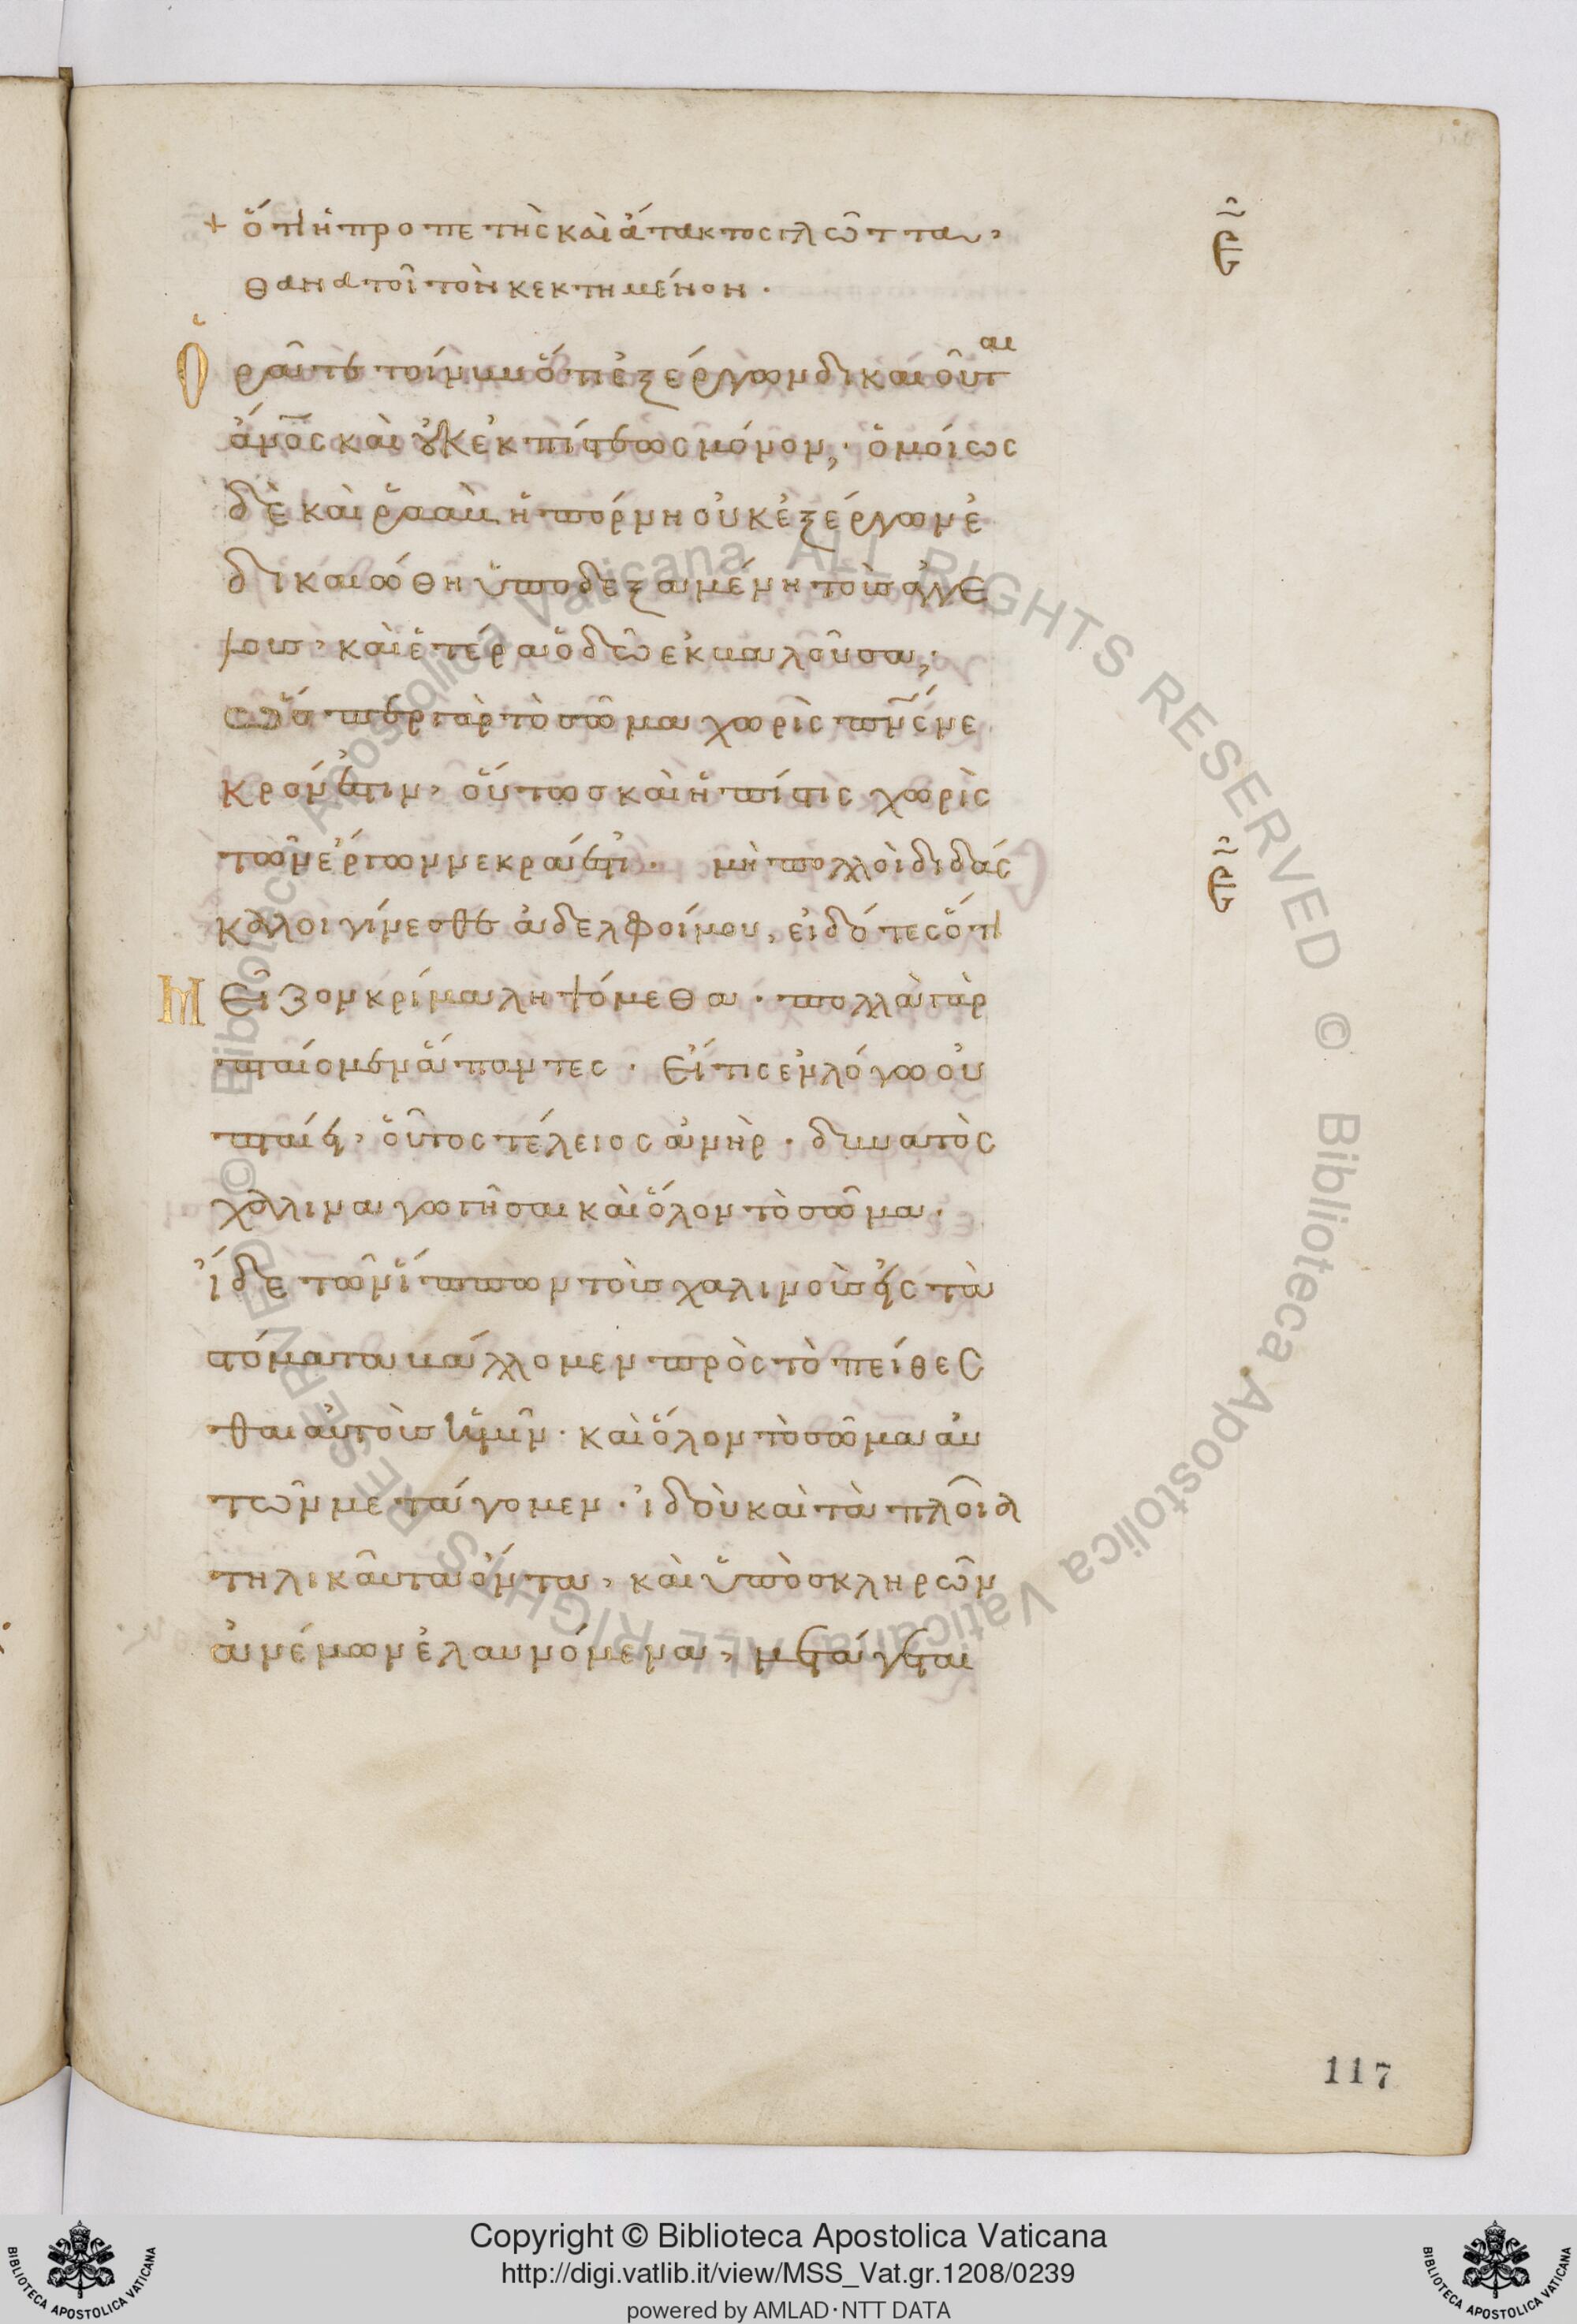 + ὅτι ἡ προπετὴς καὶ ἄτακτος γλῶττα,
θανατοῖ τὸν κεκτημένον.
Ὁρᾶτε τοίνυν ὅτι ἐξ έργων δικαιοῦται
ἀνο̅ς καὶ οὐκ ἐκ πίστεως μόνον, · ὁμοίως
δὲ καὶ ῥαὰβ ἡ πόρνη οὐκ ἐξ έργων ἐ
δικαιώθη ὑποδεξαμένη τοὺς ἀγγέ
λους, καὶ ἑτέρα ὁδῶ ἐκβαλοῦσα, ·
ὥσπερ γὰρ τὸ σῶμα χωρὶς πνς νε
κρόν ἐστιν, οὕτως καὶ ἡ πίστις χωρὶς
τῶν ἔργων νεκρά ἐστι · μὴ πολλοὶ διδάς
καλοι γίνεσθε ἀδελφοί μου, εἰδότες ὅτι
Μεῖζον κρίμα ληψόμεθα · πολλὰ γὰρ
πταίομεν ἅπαντες · Εἴ τις ἐν λόγω οὐ
πταίει, οὗτος τέλειος ἀνὴρ · δυνατὸς
χαλιναγωγῆσαι καὶ ὅλον τὸ σῶμα ·
ἴδε τῶν ἵππων τοὺς χαλινοὺς εἰς τὰ
στόματα βάλλομεν πρὸς τὸ πείθεσ
θαι αὐτοὺς ἡμῖν · καὶ ὅλον τὸ σῶμα αὐ
τῶν μετάγομεν · ἰδοὺ καὶ τὰ πλοῖα
τηλικαῦτα ὄντα, καὶ ὑπὸ σκληρῶν
ἀνέμων ἐλαυνόμενα, μετάγεται
117
Copyright © Biblioteca Apostolica Vaticana
http://digi.vatlib.it/view/MSS_Vat.gr.1208/0239
powered by AMLAD·NTT DATA
BIBLIOTECA APOSTOLICA VATICANA
BIBLIOTECA APOSTOLICA VATICANA
© Biblioteca Apostolica Vaticana ALL RIGHTS RESERVED © Biblioteca Apostolica Vaticana ALL RIGHTS RESERVED